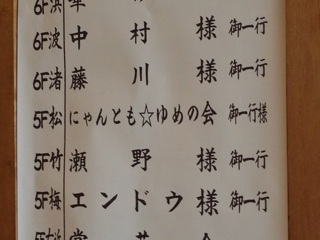 6F浜
6F波 中村様 御一行
6F渚 藤川様 御一行
5F松 にゃんとも☆ゆめの会 御一行様
5F竹 瀬野様 御一行
5F梅 エンドウ様 御一行